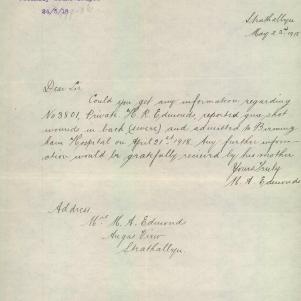 24/5/18
Strathallyn
May 22nd 1918
Dear Sir
Could you get any information regarding
No 3801, Private H. R. Edmonds, reported gun shot
wounds in back (severe) and admitted to Birming
ham Hospital on April 21st 1918. Any further inform-
ation would be gratefully received by his mother
Yours Truly
M. A. Edmonds
Address
Mrs M. A. Edmonds
Angas View
Strathallyn.